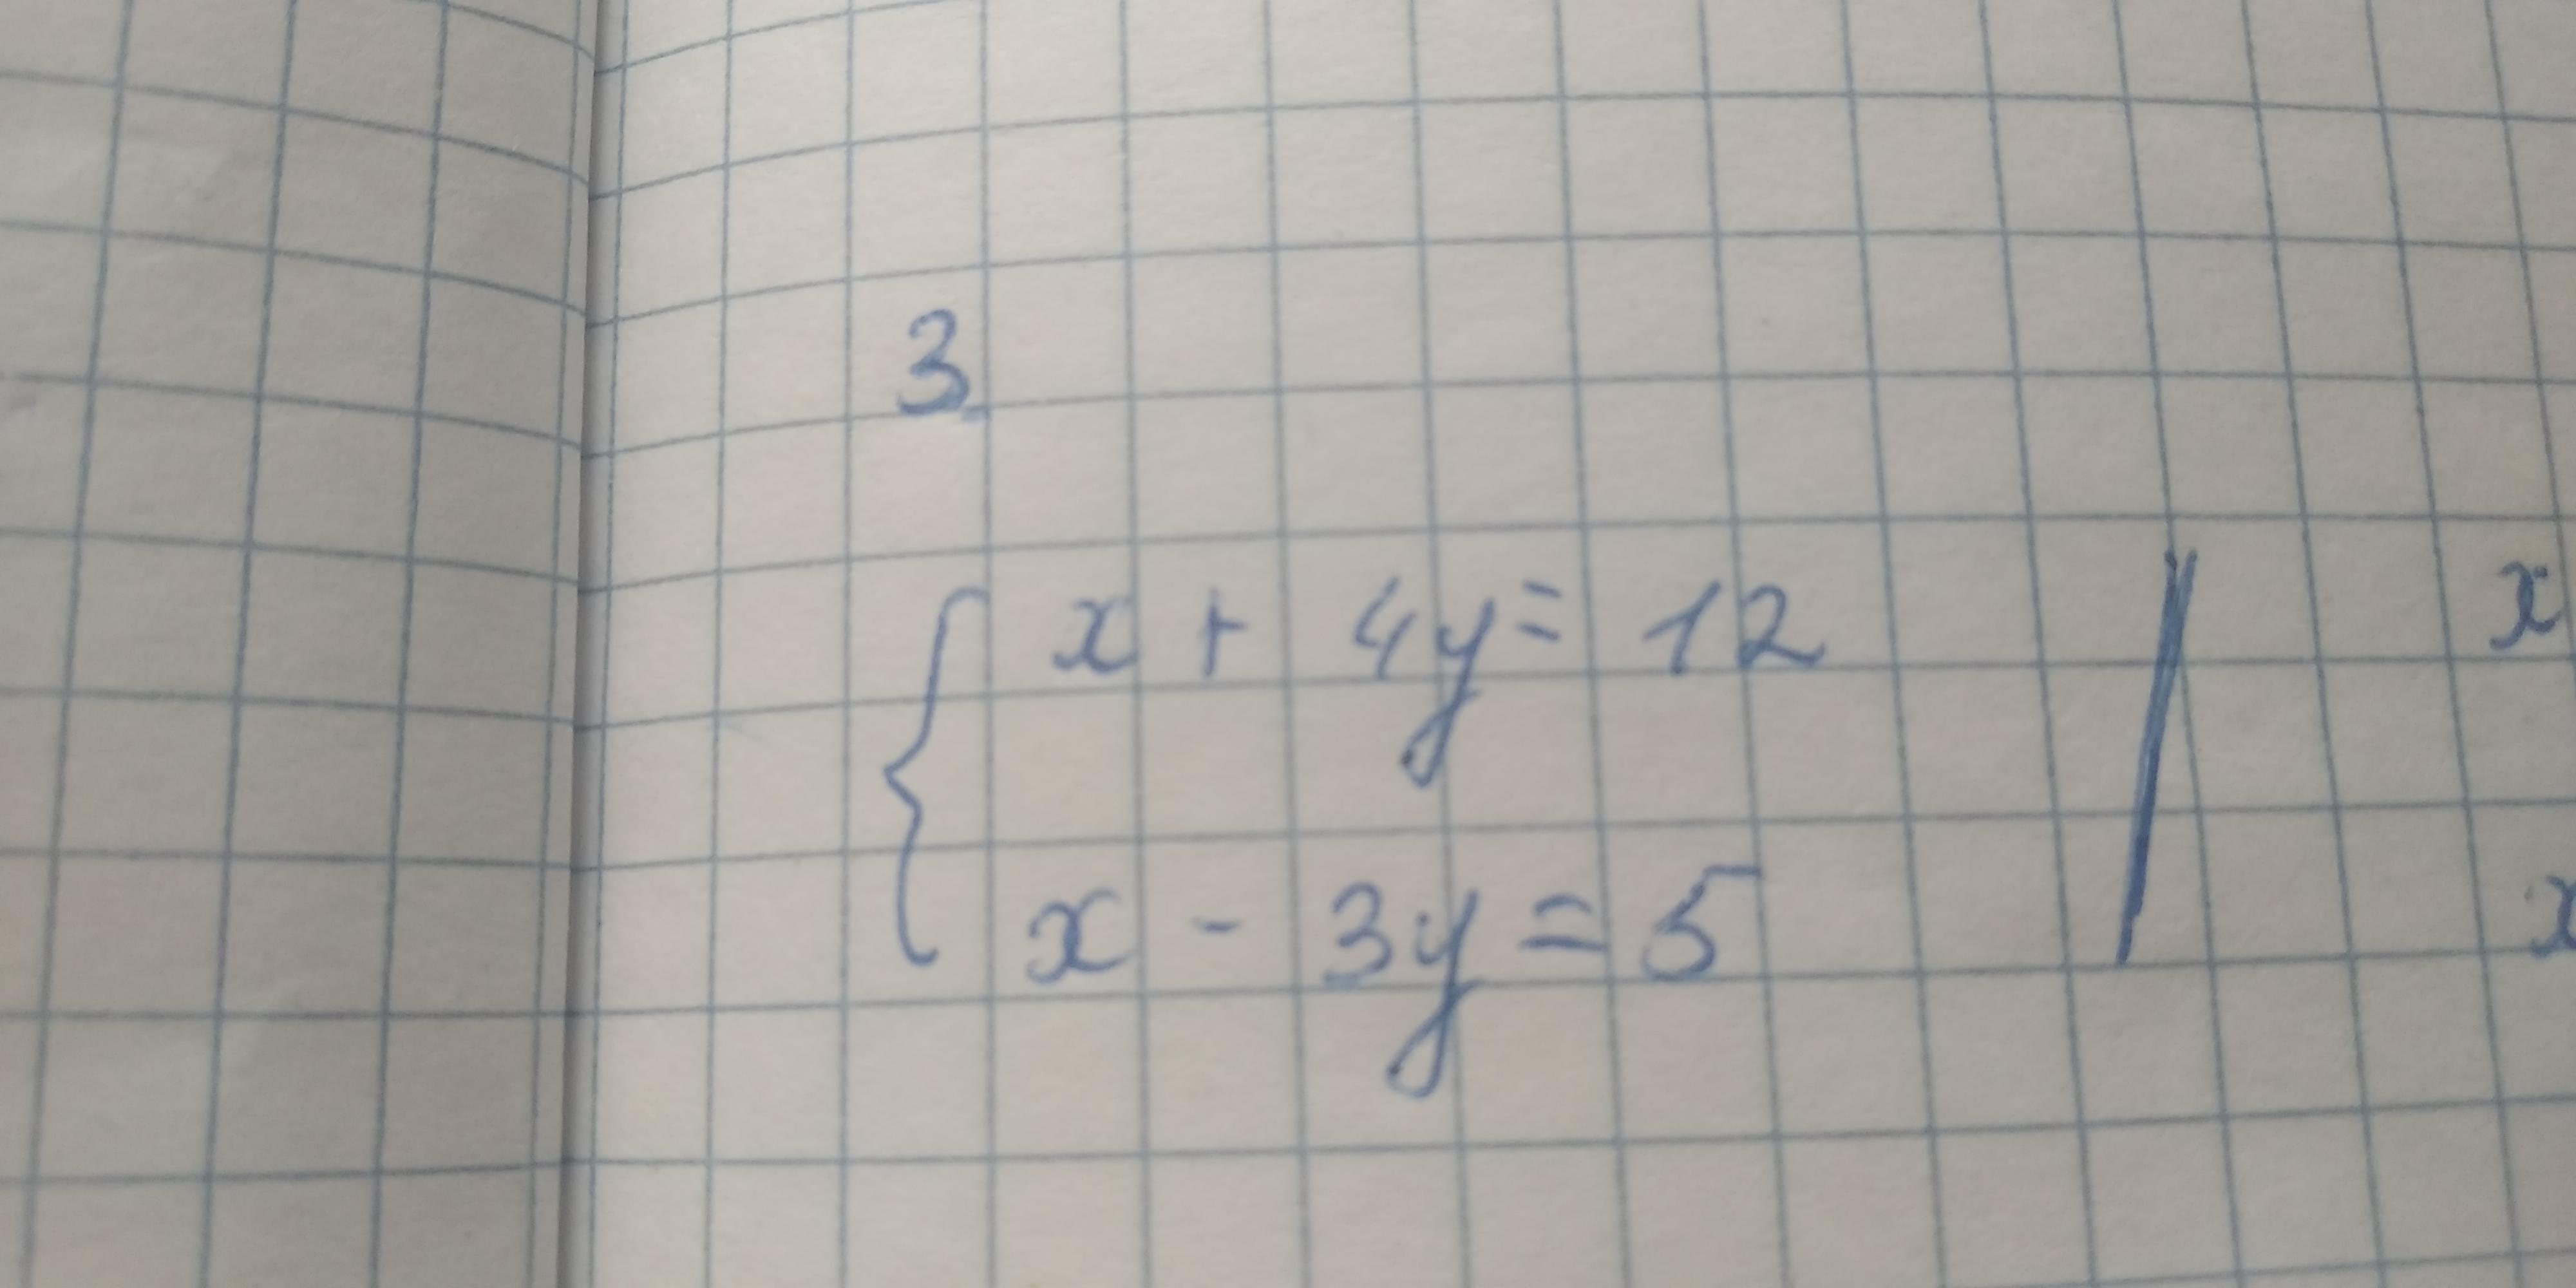 3.
x + 4y = 12 x
x - 3y = 5 x